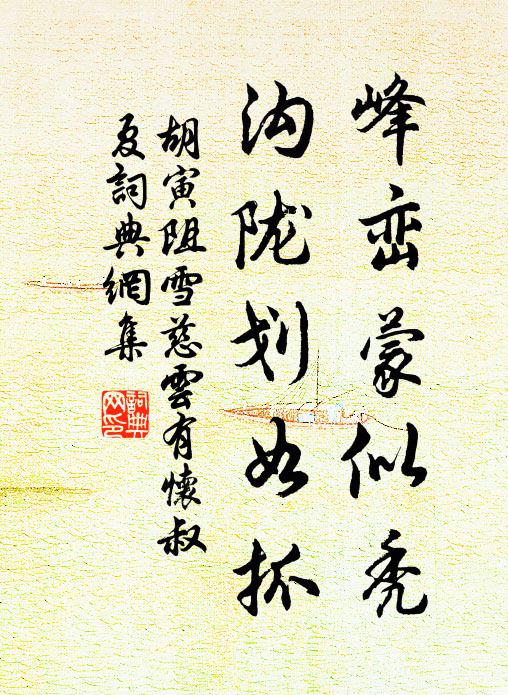 峰峦蒙似秃
沟陇划如抓
胡寅阻雪慈雲有懷叔
夏詞典網集
詞典网印